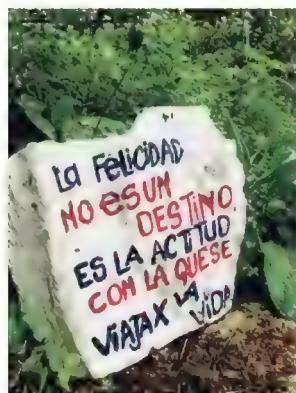 La FELiCiDAD
NO eS UN
DESTINO,
ES LA ACTITUD
CON LA QUE SE
VIAJAX LA
ViDA